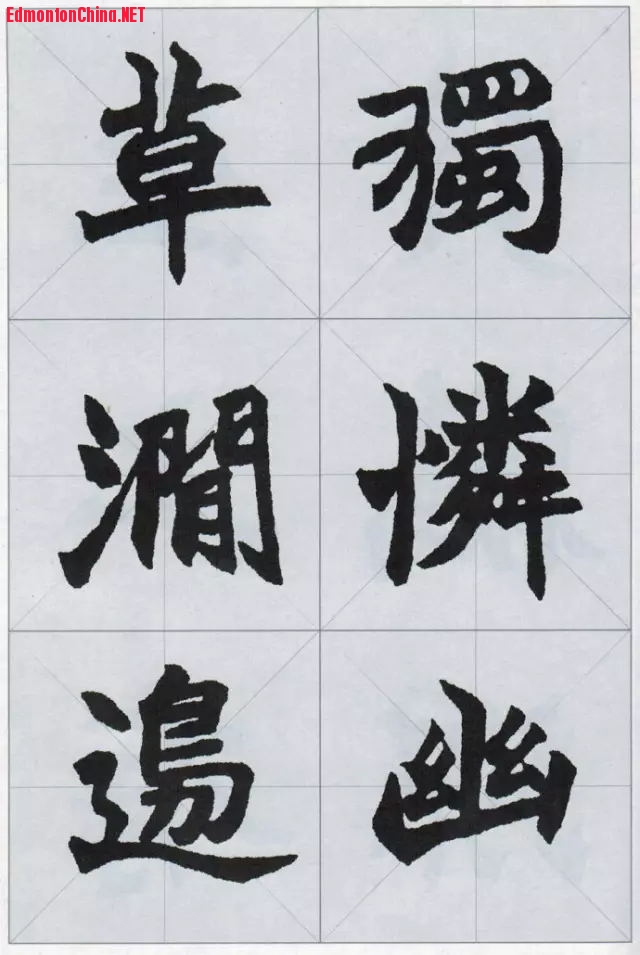 EdmontonChina.NET
獨憐幽
草澗邊